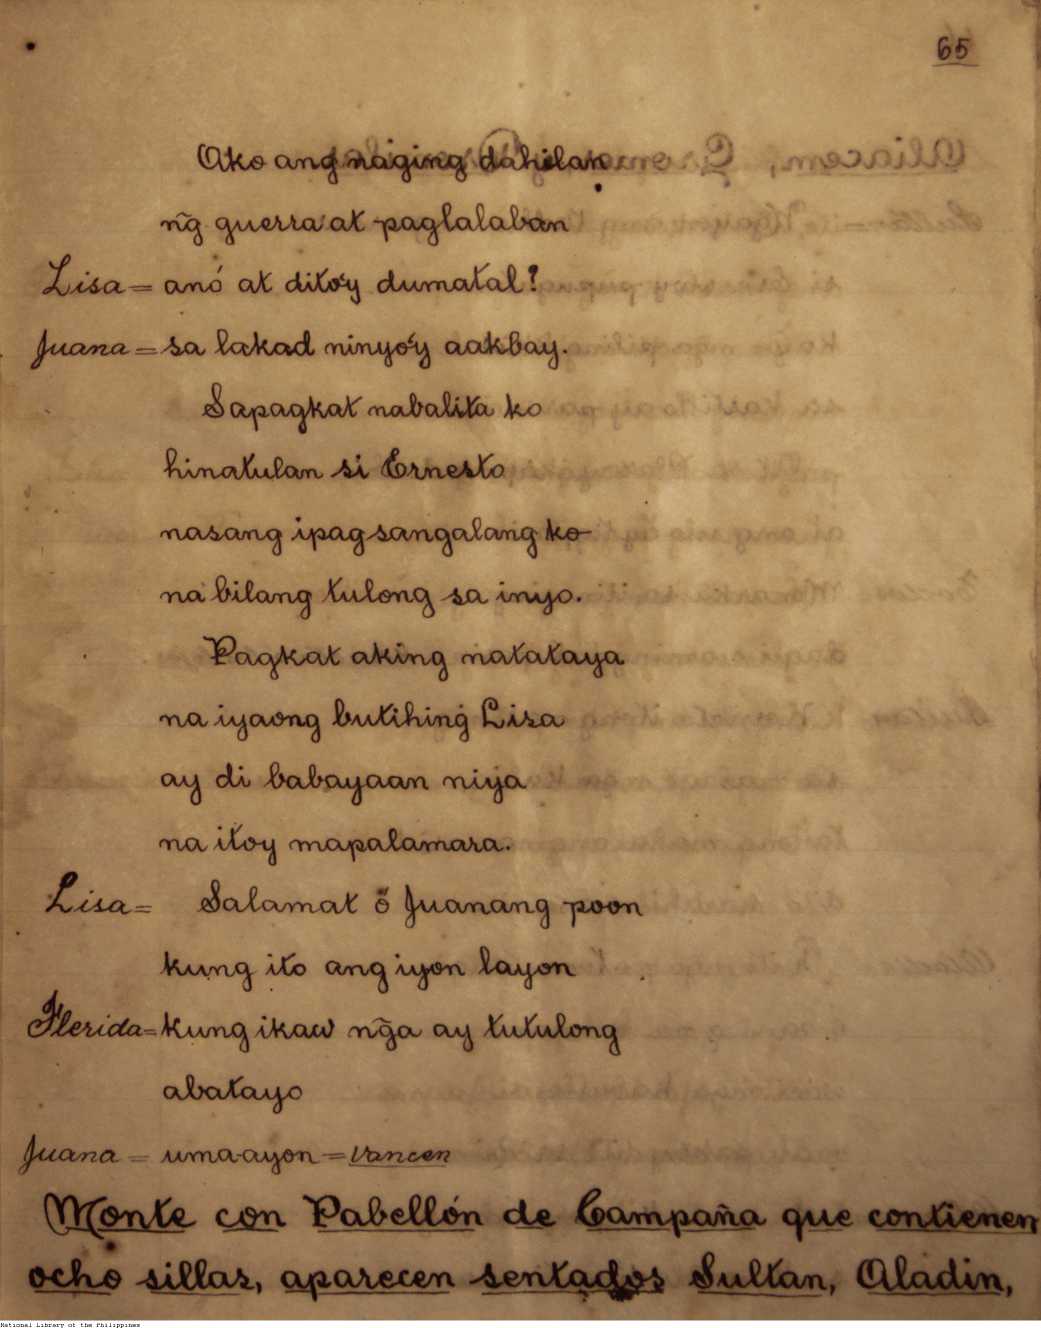 65
Ako ang naging dahilan
n͠g guerra at paglalaban
Lisa = anó at dito'y dumatal?
Juana = sa lakad ninyo'y aakbay.
Sapagkat nabalita ko
hinatulan si Ernesto
nasang ipagsangalang ko
na bilang tulong sa inyo.
Pagkat aking natataya
na iyaong butihing Lisa
ay di babayaan niya
na itoy mapalamara.
Lisa = Salamat ö Juanang poon
kung ito ang iyon layon
Flerida = kung ikaw n͠ga ay tutulong
abatayo
Juana = uma-ayon = Vancen
Monte con Pabellón de Campaña que contienen
ocho sillas, aparecen sentados Sultan, Aladin,
National Library of the Philippines